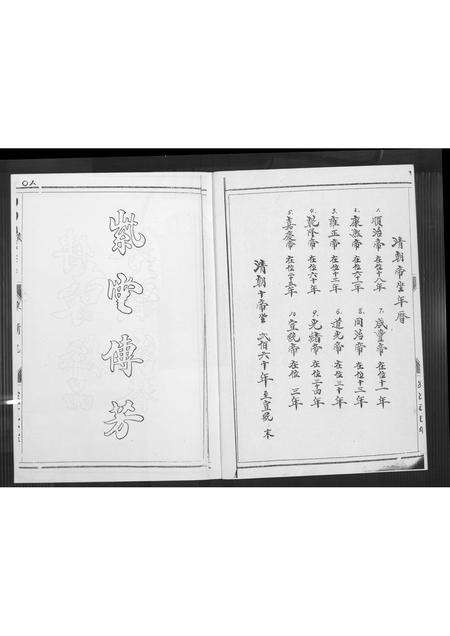 清朝帝坐年曆
1. 順治帝 在位十八年
2. 康熙帝 在位六十一年
3. 雍正帝 在位十三年
4. 乾隆帝 在位六十年
5. 嘉慶帝 在位廿五年
7. 咸豐帝 在位十一年
8. 同治帝 在位十三年
6. 道光帝 在位三十年
9. 光緒帝 在位三十四年
10. 宣統帝 在位三年
清朝十帝坐 弍百六十年 至宣統末
紫堂傳芳